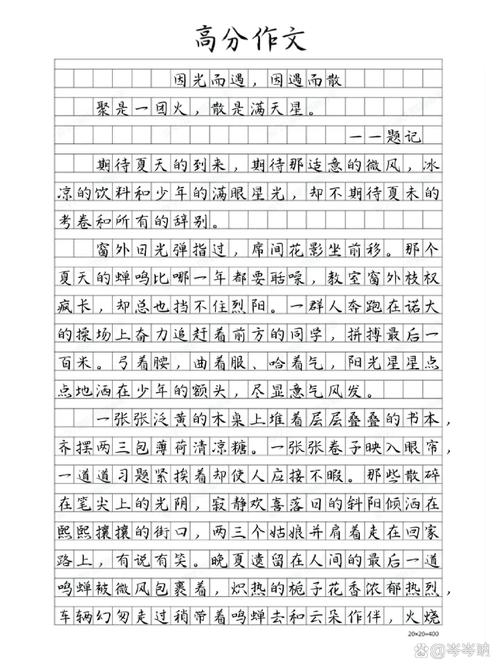 高分作文
因光而遇，因遇而散
聚是一团火，散是满天星。
——题记
期待夏天的到来，期待那适意的微风，冰
凉的饮料和少年的满眼星光，却不期待夏末的
考卷和所有的辞别。
窗外日光弹指过，席间花影坐前移。那个
夏天的蝉鸣比哪一年都要聒噪，教室窗外枝杈
疯长，却总也挡不住烈阳。一群人奔跑在诺大
的操场上奋力追赶着前方的同学，拼搏最后一
百米。弓着腰，曲着服、哈着气，阳光星星点
点地洒在少年的额头，尽显意气风发。
一张张泛黄的木桌上堆着层层叠叠的书本，
齐摆两三包薄荷清凉糖。一张张卷子映入眼帘，
一道道习题紧挨着却使人应接不暇。那些散碎
在笔尖上的光阴，寂静欢喜落日的斜阳倾洒在
熙熙攘攘的街口，两三个姑娘并肩着走在回家
路上，有说有笑。晚夏遗留在人间的最后一道
鸣蝉被微风包裹着，炽热的栀子花香浓郁热烈，
车辆幻匆走过稍带着鸣蝉去和云朵作伴，火烧
20×20=400
岑岑呐